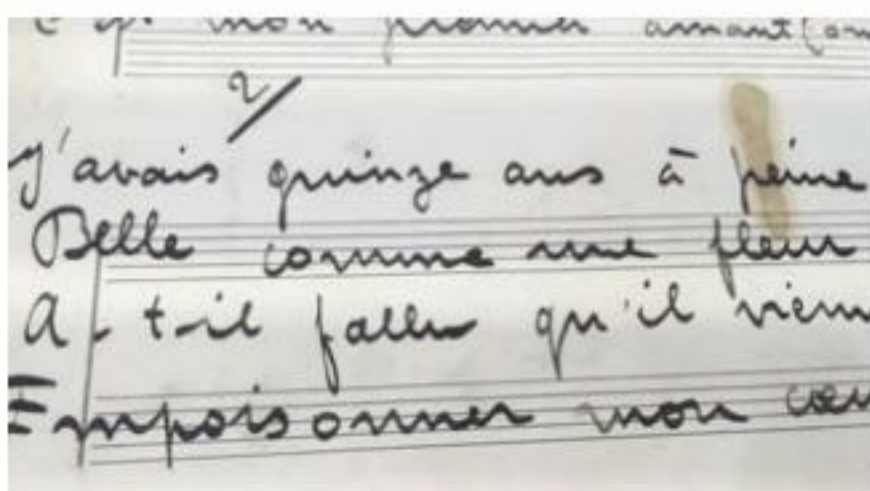 mon premier amant
2/
J'avais quinze ans à peine
Belle comme une fleur
A-t-il fallu qu'il vienn
Empoisonner mon cœu